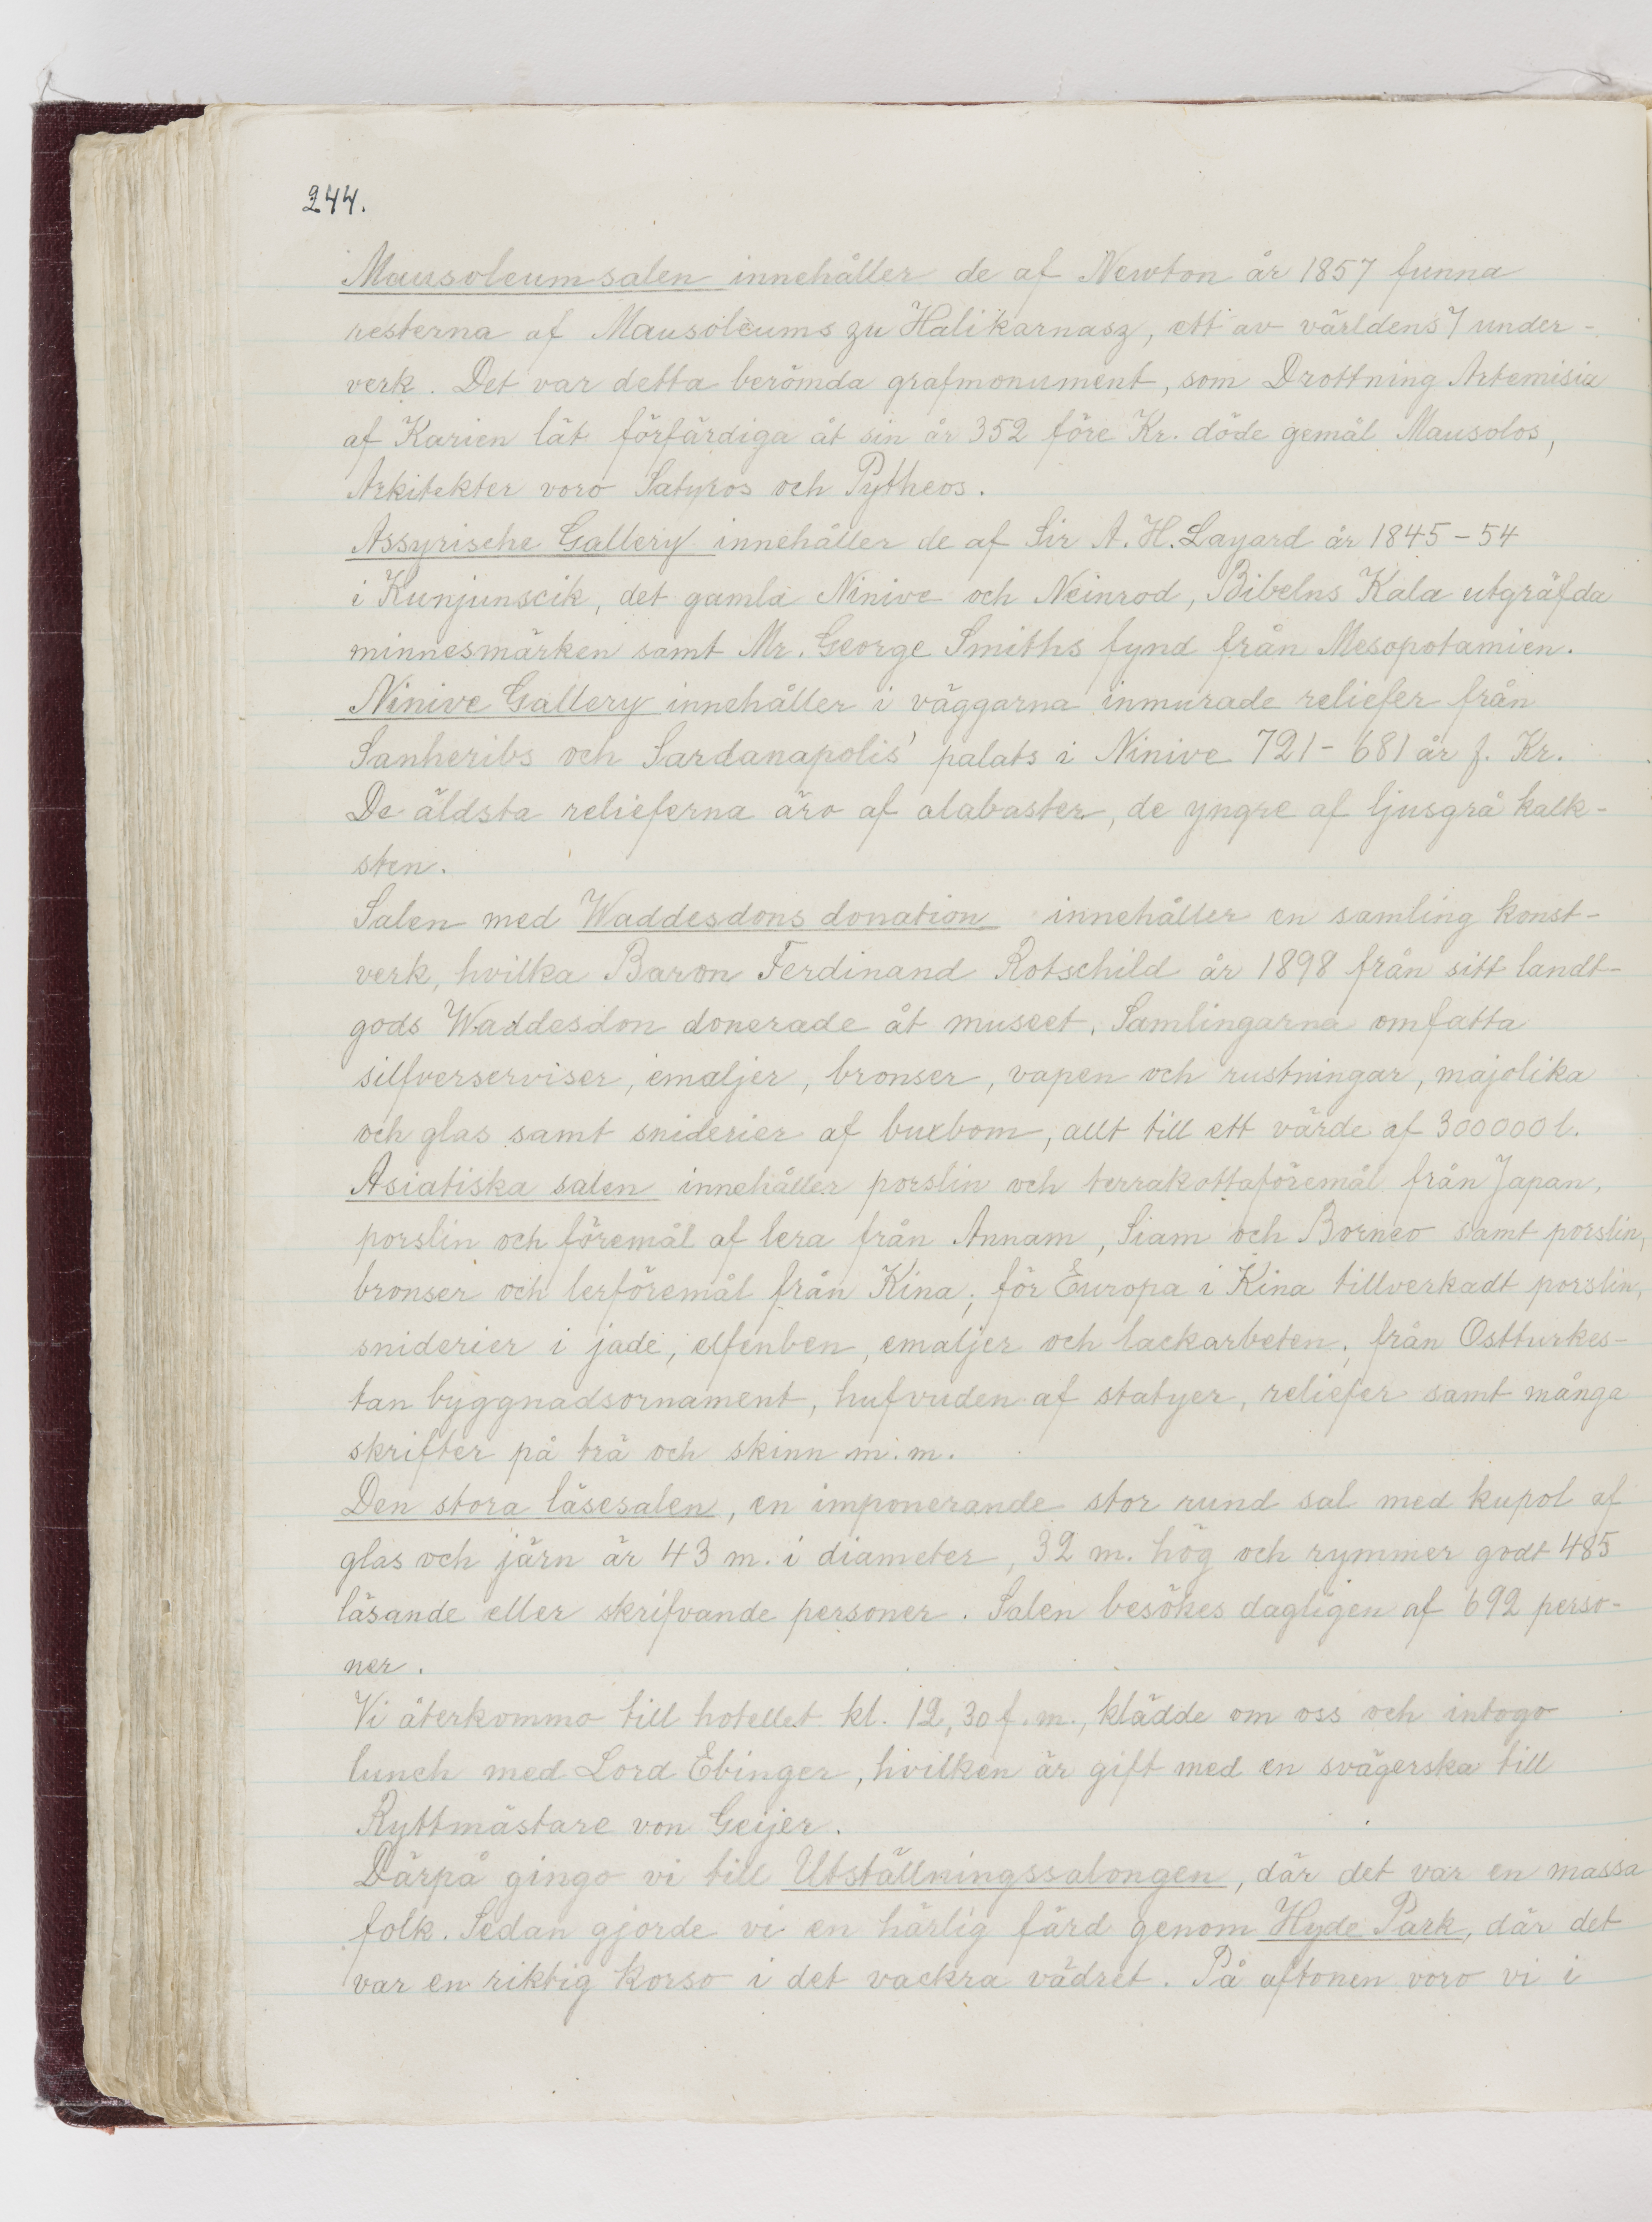 244.
Mausoleumsalen innehåller de af Newton år 1857 funna
resterna af Mausoleums zu Halikarnasz, ett av världens 7 under-
verk. Det var detta berömda grafmonument, som Drottning Artemisia
af Karien lät förfärdiga åt sin år 352 före Kr. döde gemål Mausolos,
Arkitekter voro Satyros och Pytheos.
Assyrische Gallery innehåller de af Sir A. H. Layard år 1845-54
i Kunjunscik, det gamla Ninive och Neinrod, Bibelns Kala utgräfda
minnesmärken samt Mr. George Smiths fynd från Mesopotamien.
Ninive Gallery innehåller i väggarna inmurade reliefer från
Sanheribs och Sardanapolis' palats i Ninive 721-681 år f. Kr.
De äldsta relieferna äro af alabaster, de yngre af ljusgrå kalk-
sten.
Salen med Waddesdons donation innehåller en samling konst-
verk, hvilka Baron Ferdinand Rotschild år 1898 från sitt landt-
gods Waddesdon donerade åt museet. Samlingarna omfatta
silfverserviser, emaljer, bronser, vapen och rustningar, majolika
och glas samt sniderier af buxbom, allt till ett värde af 300000 l.
Asiatiska salen innehåller porslin och terrakottaföremål från Japan,
porslin och föremål af lera från Annam, Siam och Borneo samt porslin,
bronser och lerföremål från Kina; för Europa i Kina tillverkadt porslin,
sniderier i jade, elfenben, emaljer och lackarbeten; från Ostturkes-
tan byggnadsornament, hufvuden af statyer, reliefer samt många
skrifter på trä och skinn m. m.
Den stora läsesalen, en imponerande stor rund sal med kupol af
glas och järn är 43 m. i diameter, 32 m. hög och rymmer godt 485
läsande eller skrifvande personer. Salen besökes dagligen af 692 perso-
ner.
Vi återkommo till hotellet kl. 12,30 f. m., klädde om oss och intogo
lunch med Lord Ebinger, hvilken är gift med en svägerska till
Ryttmästare von Geijer.
Därpå gingo vi till Utställningssalongen, där det var en massa
folk. Sedan gjorde vi en härlig färd genom Hyde Park, där det
var en riktig korso i det vackra vädret. På aftonen voro vi i